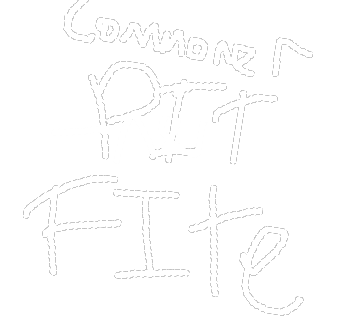 COMMONER
PIT
FIte